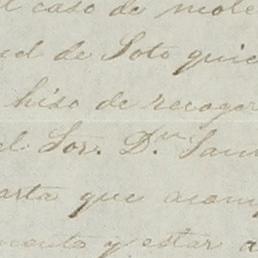 l caso de mole
ud de Soto quie
hiso de recoger
el Sor. Dn. Sam
arta que acom
mento y estar a